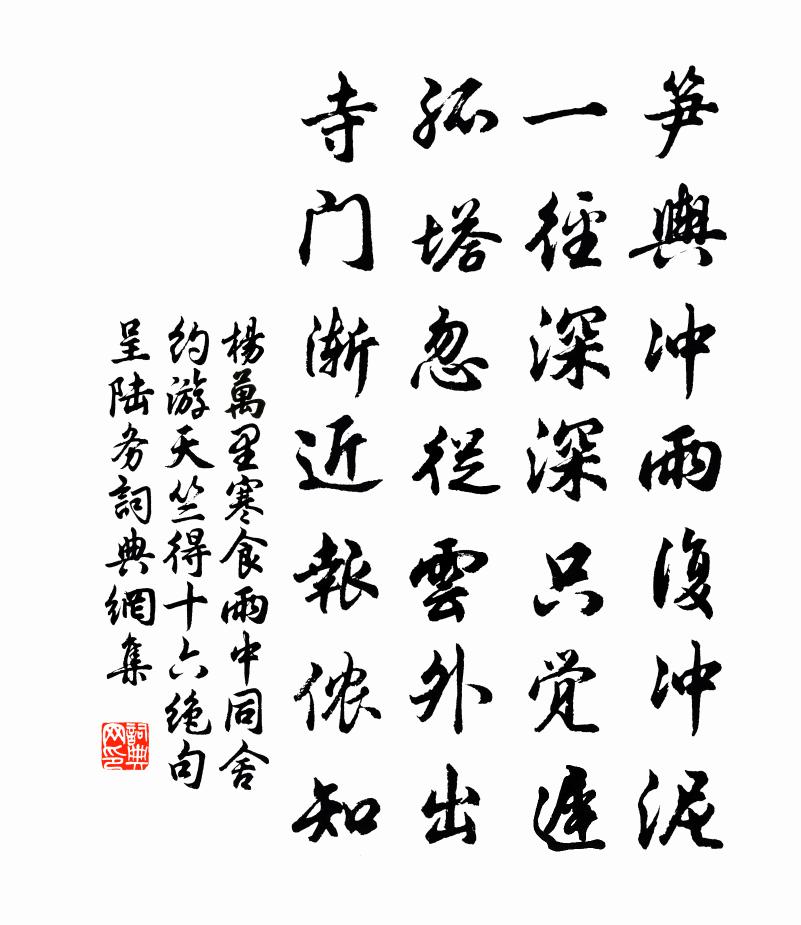 笋輿冲雨復冲泥
一徑深深只覚遲
孤塔忽從雲外出
寺门渐近報侬知
楊萬里寒食雨中同舍
約游天竺得十六絶句
呈陆务詞典網集
詞典网印